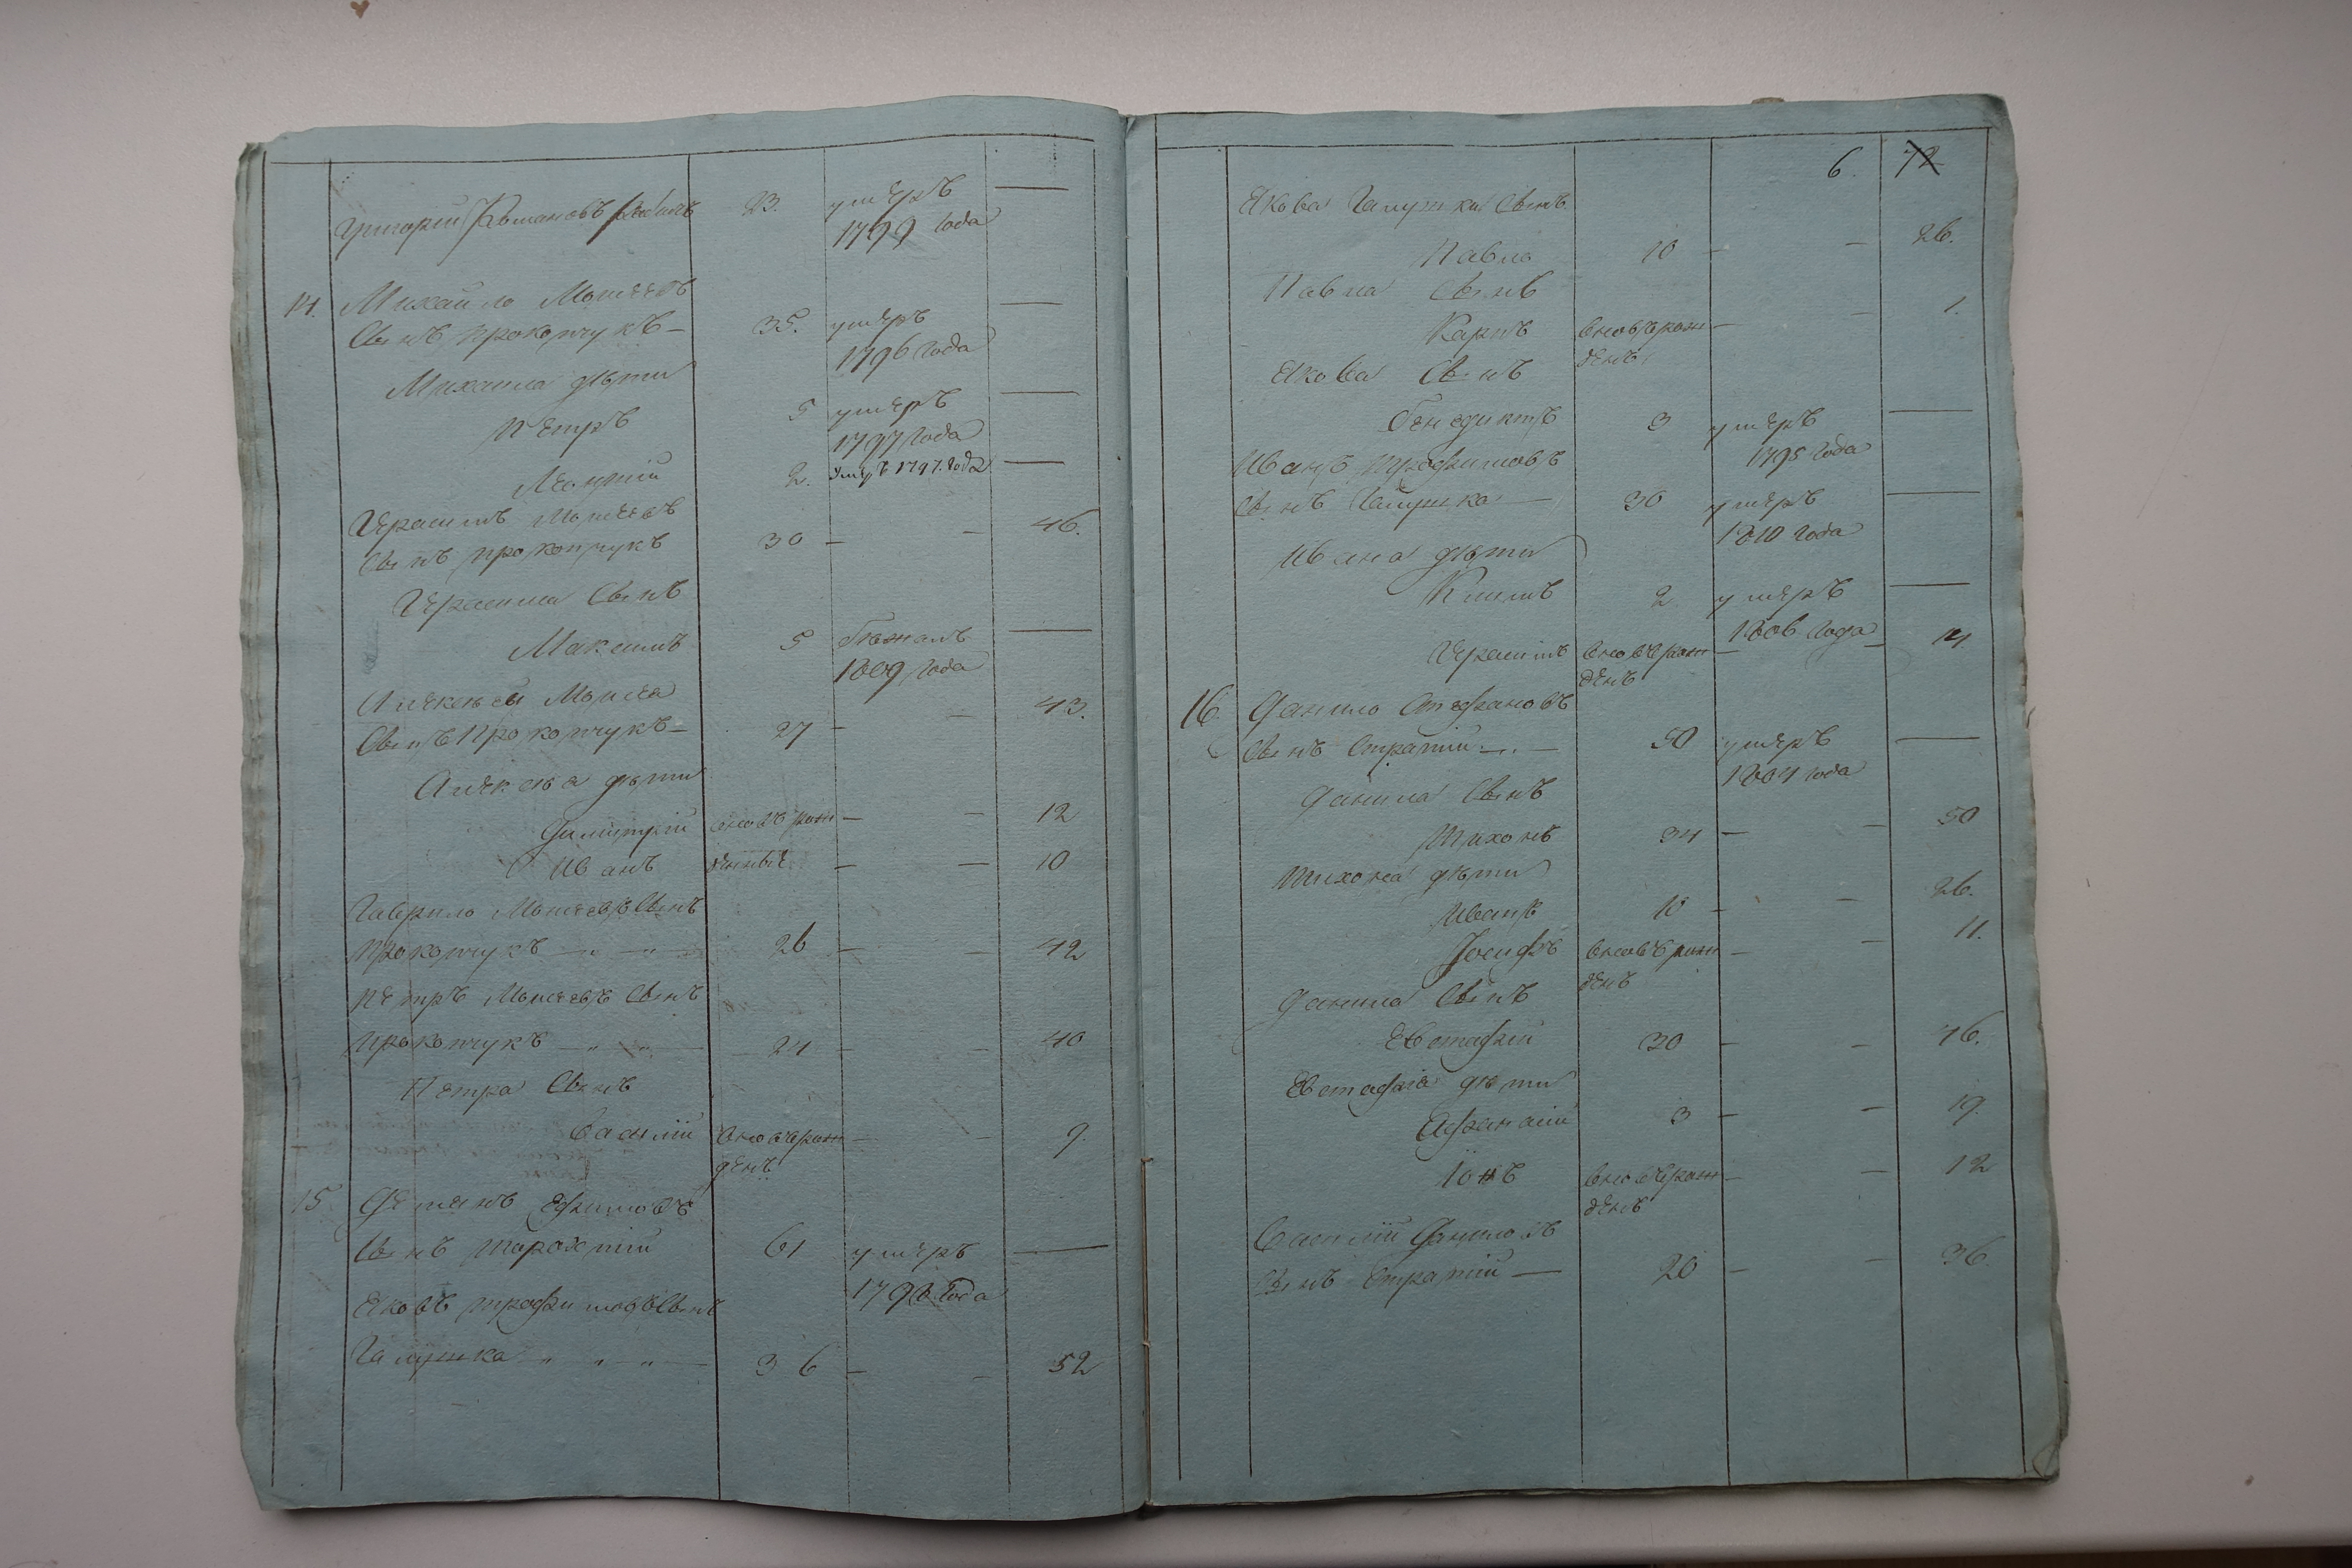 Григорий Романовъ сынъ 23. умеръ —
1799 года
14. Михайло Моисеевъ
сынъ Прокопчукъ — 35. умеръ —
1796 года
Михаила дѣти
Петръ 5 умеръ —
1797 года
Леонтий 2. умеръ 1797. года —
Герасимъ Моисеевъ
сынъ Прокопчукъ 30 — — 46.
Герасима сынъ
Максимъ 5 бѣжалъ —
1809 года
Алексей Моисеа
сынъ Прокопчукъ — 27 — — 43.
Алексѣа дѣти
Димитрий вновьрож — — 12
Иванъ денные — — 10
Гаврило Моисеевъ сынъ
Прокопчукъ — 26 — — 42
Петръ Моисеевъ сынъ
Прокопчукъ — 24 — — 40
Петра сынъ
Василий вновьрож — — 9.
денъ
15 Демянъ Ефимовъ
сынъ 61 умеръ —
года
Яковъ Трофимовъ сынъ
Галушка — 36 — — 52
6. 72
Якова Галушки сынъ
Павло 10 — — 26.
Павла сынъ
Карпъ вновьрож — — 1.
денъ
Якова сынъ
Бенедиктъ 3 умеръ —
1795 года
Иванъ Трофимовъ
сынъ Галушка — 30 умеръ —
1810 года
Ивана дѣти
Климъ 2 умеръ —
1806 года
Герасимъ вновьрож — — 14
денъ
16. Данило Стефановъ
сынъ Стратий — 50 умеръ —
1804 года
Данила сынъ
Тихонъ 34 — — 50
Тихона дѣти
Иванъ 10 — — 26.
Іосифъ вновьрож — — 11.
денъ
Данила сынъ
Евстафий 30 — — 46.
Евстафиа дѣти
Афанасий 3 — — 19.
Іонъ вновьрож — — 12
денъ
Василий Даниловъ
сынъ Стратий — 20 — — 36.